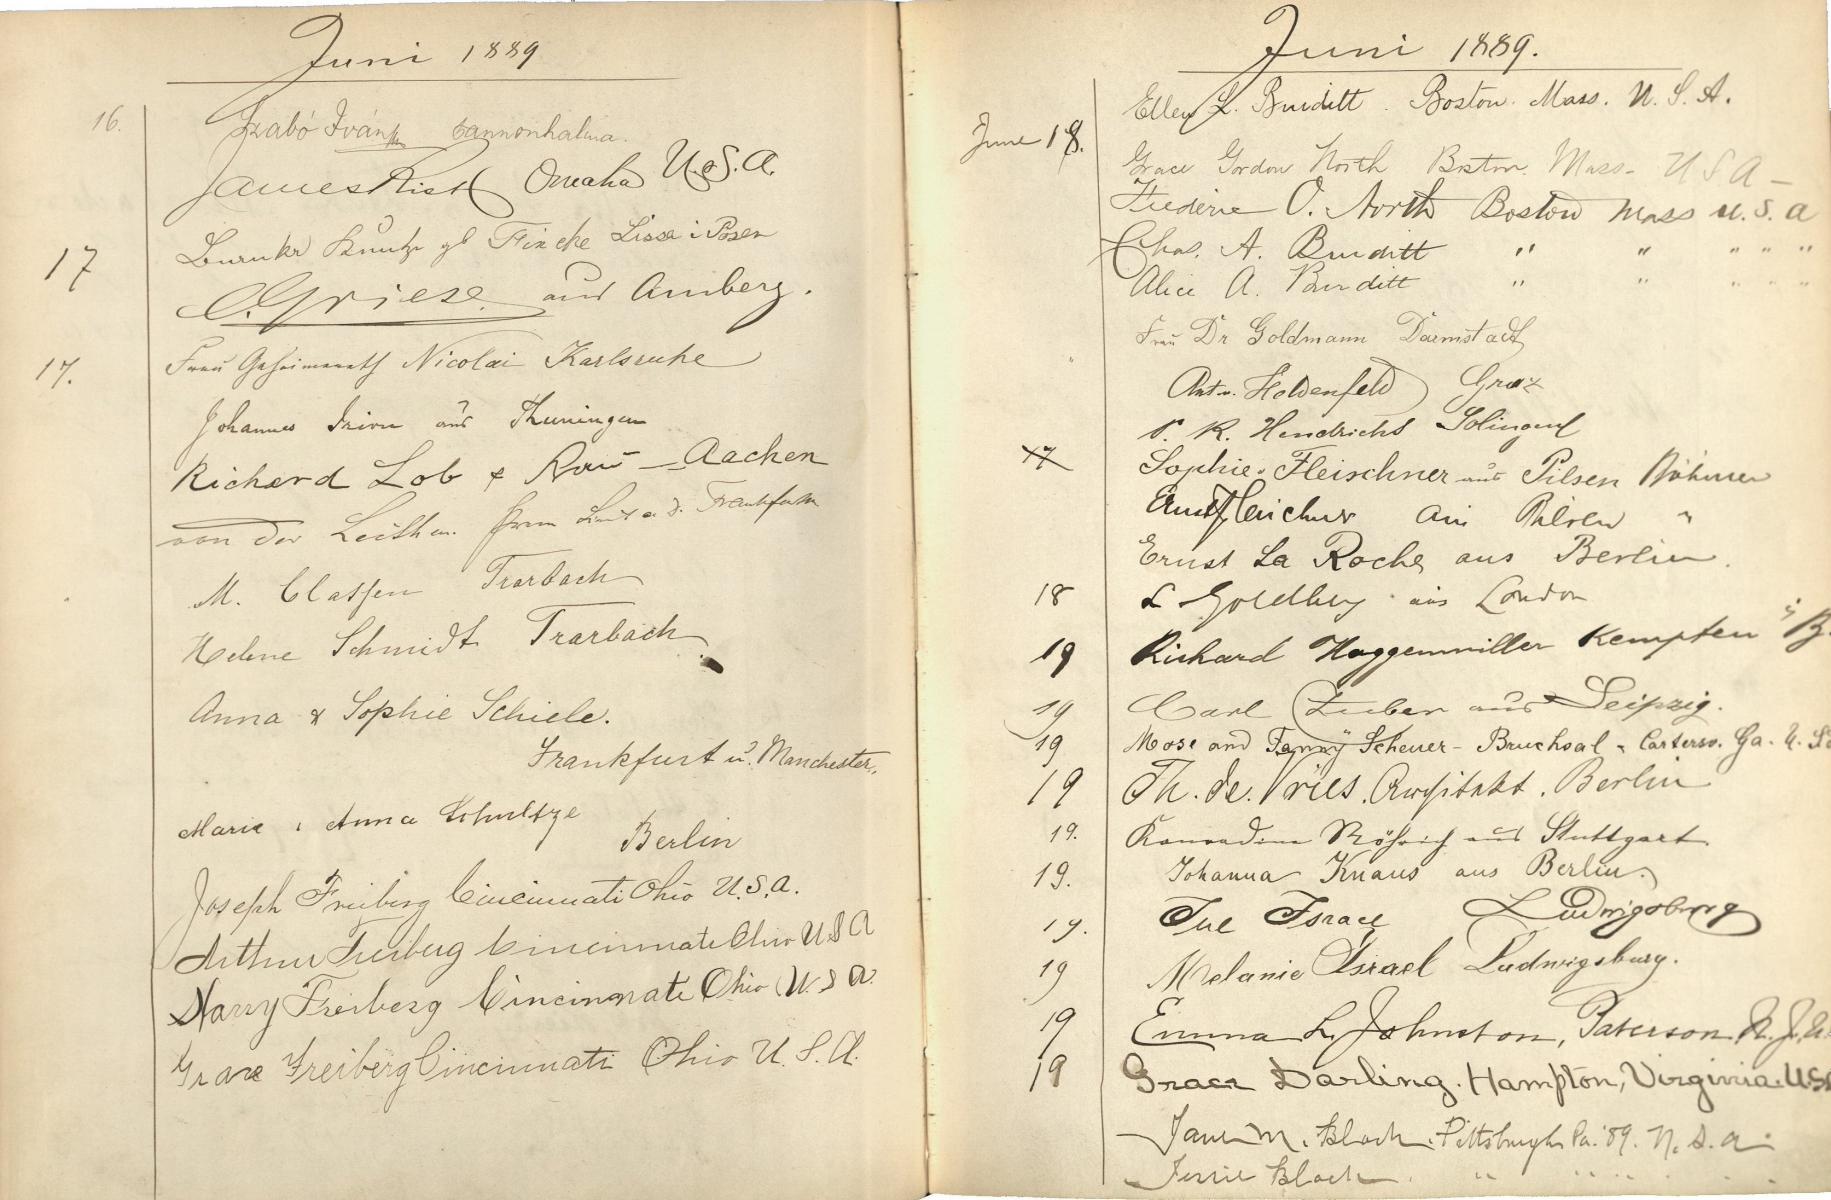 Juni 1889
16.
Szabó Iván Pannonhalma.
James Rist Omaha U.S.A.
17
Lissa i Posen
C. Griese aus Amberg.
17. Frau Geheimerath Nicolai Karlsruhe
Johannes Irion aus Thuningen
Richard Lob & Frau – Aachen
von der Leithen.
M. Classen Trarbach
Helene Schmidt Trarbach
Anna & Sophie Schiele.
Frankfurt u. Manchester.
Marie u Anna Schultze
Berlin
Joseph Freiberg Cincinnati Ohio U.S.A.
Arthur Freiberg Cincinnati Ohio U S A
Harry Freiberg Cincinnati Ohio U. S A.
Grace Freiberg Cincinnati Ohio U. S. A.
Juni 1889.
Ellen L. Burditt. Boston. Mass. U. S. A.
June 18. Grace Gordon North Boston. Mass. U S A –
Frederic O. North Boston Mass U. S. A
Chas. A. Burditt " " " " "
Alice A. Burditt " " " " "
Frau Dr Goldmann Darmstadt
Holdenfeld Graz
P. R. Hendrichs Solingen
17 Sophie Fleischner aus Pilsen Böhmen
Ernst Fleischner aus Pilsen "
Ernst La Roche aus Berlin.
18 L Goldberg aus London
19 Richard Haggenmiller Kempten i/B.
19 Carl aus Leipzig.
19 Mose and Fanny Scheuer – Bruchsal & Carters. Ga. U. S.
19 Th. de. Vries. Architekt. Berlin
19. Konradine Röhrich aus Stuttgart
19. Johanna Knaus aus Berlin.
19. Israel Ludwigsburg
19 Melanie Israel Ludwigsburg.
19 Emma L. Johnston, Paterson N. J. U.
19 Grace Darling. Hampton, Virginia. U.S.
Jane M. Black. Pittsburgh Pa. '89. U. S. A.
Jessie Black " " " " "